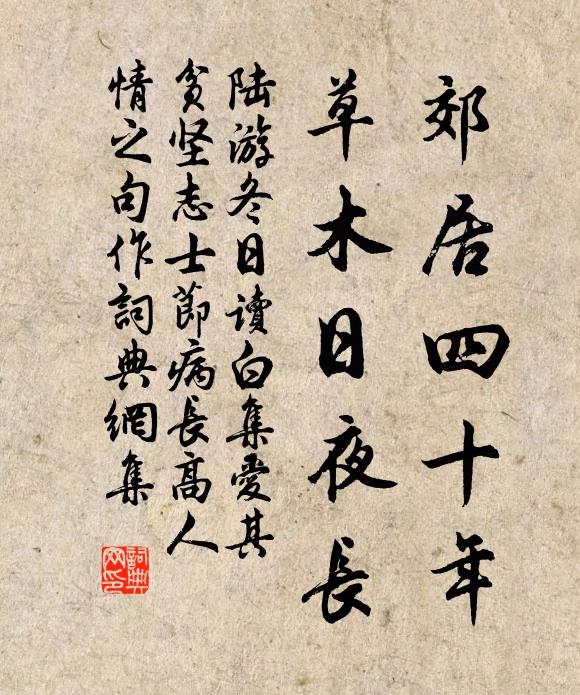 郊居四十年
草木日夜長
陆游冬日读白集爱其
貧坚志士節病長高人
情之句作詞典網集
詞典网印